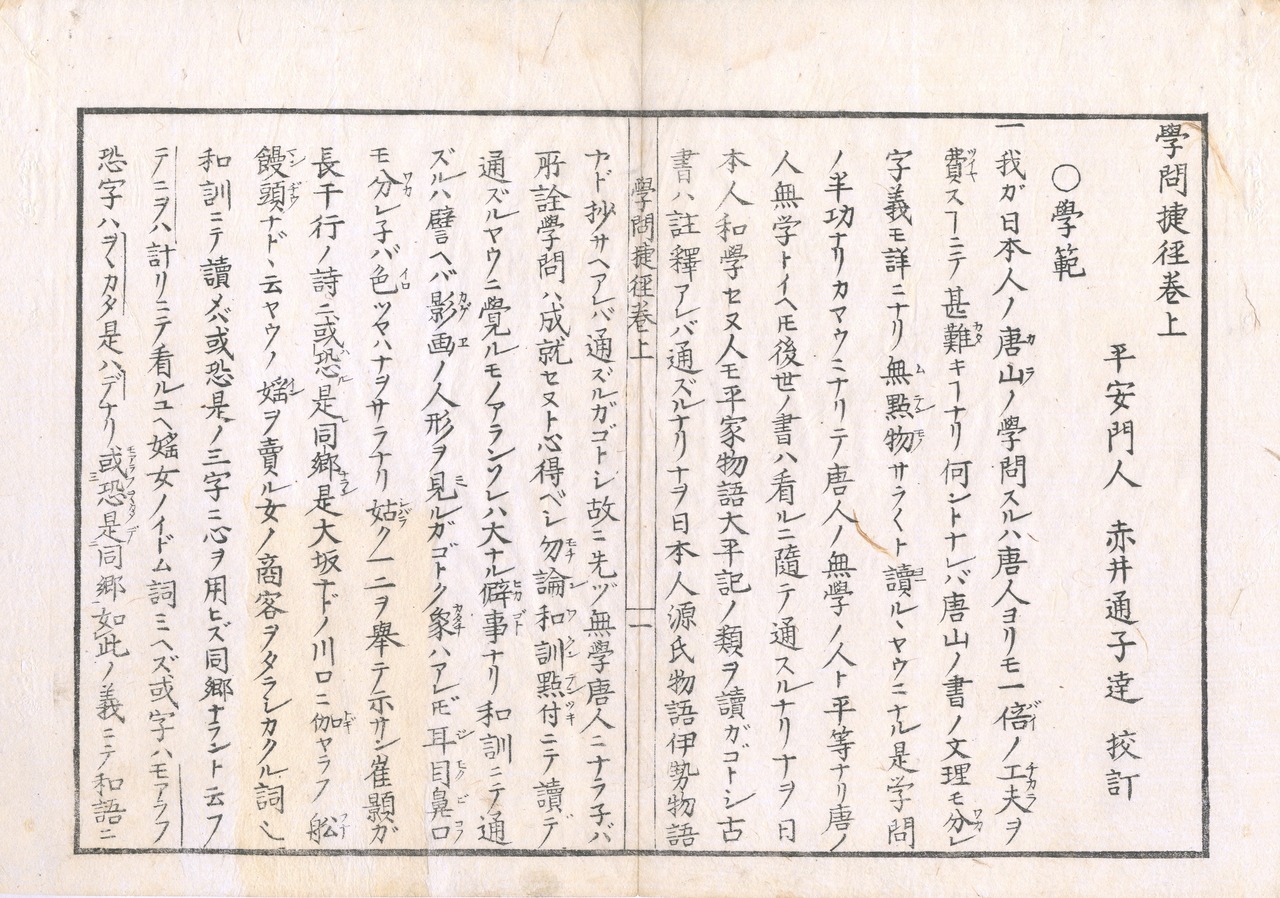 學問捷徑卷上
平安門人 赤井通子達 挍訂
○學範
一我ガ日本人ノ唐山ノ學問スルハ唐人ヨリモ一倍ノ工夫ヲ
費スヿニテ甚難キヿナリ何ントナレバ唐山ノ書ノ文理モ分レ
字義モ詳ニナリ無點物サラ〱ト讀ルヽヤウニナル是学問
ノ半功ナリカヤウニナリテ唐人ノ無學ノ人ト平等ナリ唐ノ
人無学トイヘ𪜈後世ノ書ハ看ルニ隨テ通スルナリナヲ日
本人和學セヌ人モ平家物語大平記ノ類ヲ讀ガゴトシ古
書ハ註釋アレバ通ズルナリナヲ日本人源氏物語伊勢物語
學問捷徑卷上
一
ナド抄サヘアレバ通ズルガゴトシ故ニ先ヅ無學唐人ニナラ子バ
所詮學問ハ成就セヌト心得ベシ勿論和訓點付ニテ讀デ
通ズルヤウニ覺ルモノアランソレハ大ナル僻事ナリ和訓ニテ通
ズルハ譬ヘバ影画ノ人形ヲ見ルガゴトク象ハアレ𪜈耳目鼻口
モ分レ子バ色ツヤハナヲサラナリ姑ク一二ヲ舉テ示サン崔顥ガ
長干行ノ詩ニ或恐是同郷是大坂ナドノ川口ニ伽ヤラフ舩
饅頭ナドヽ云ヤウノ婬ヲ賣ル女ノ商客ヲタラシカクル詞ヽ
和訓ニテ讀メバ或恐是ノ三字ニ心ヲ用ヒズ同郷ナラント云フ
テニヲハ計リニテ看ルユヘ婬女ノイドム詞ミヘズ或字ハモアラフ
恐字ハヲヽカタ是ハデナリ或恐是同郷如此ノ義ニテ和語ニ